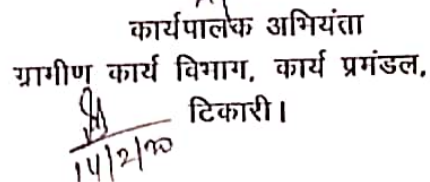 कार्यपालक अभियंता
ग्रामीण कार्य विभाग, कार्य प्रमंडल,
टिकारी।
14/2/20